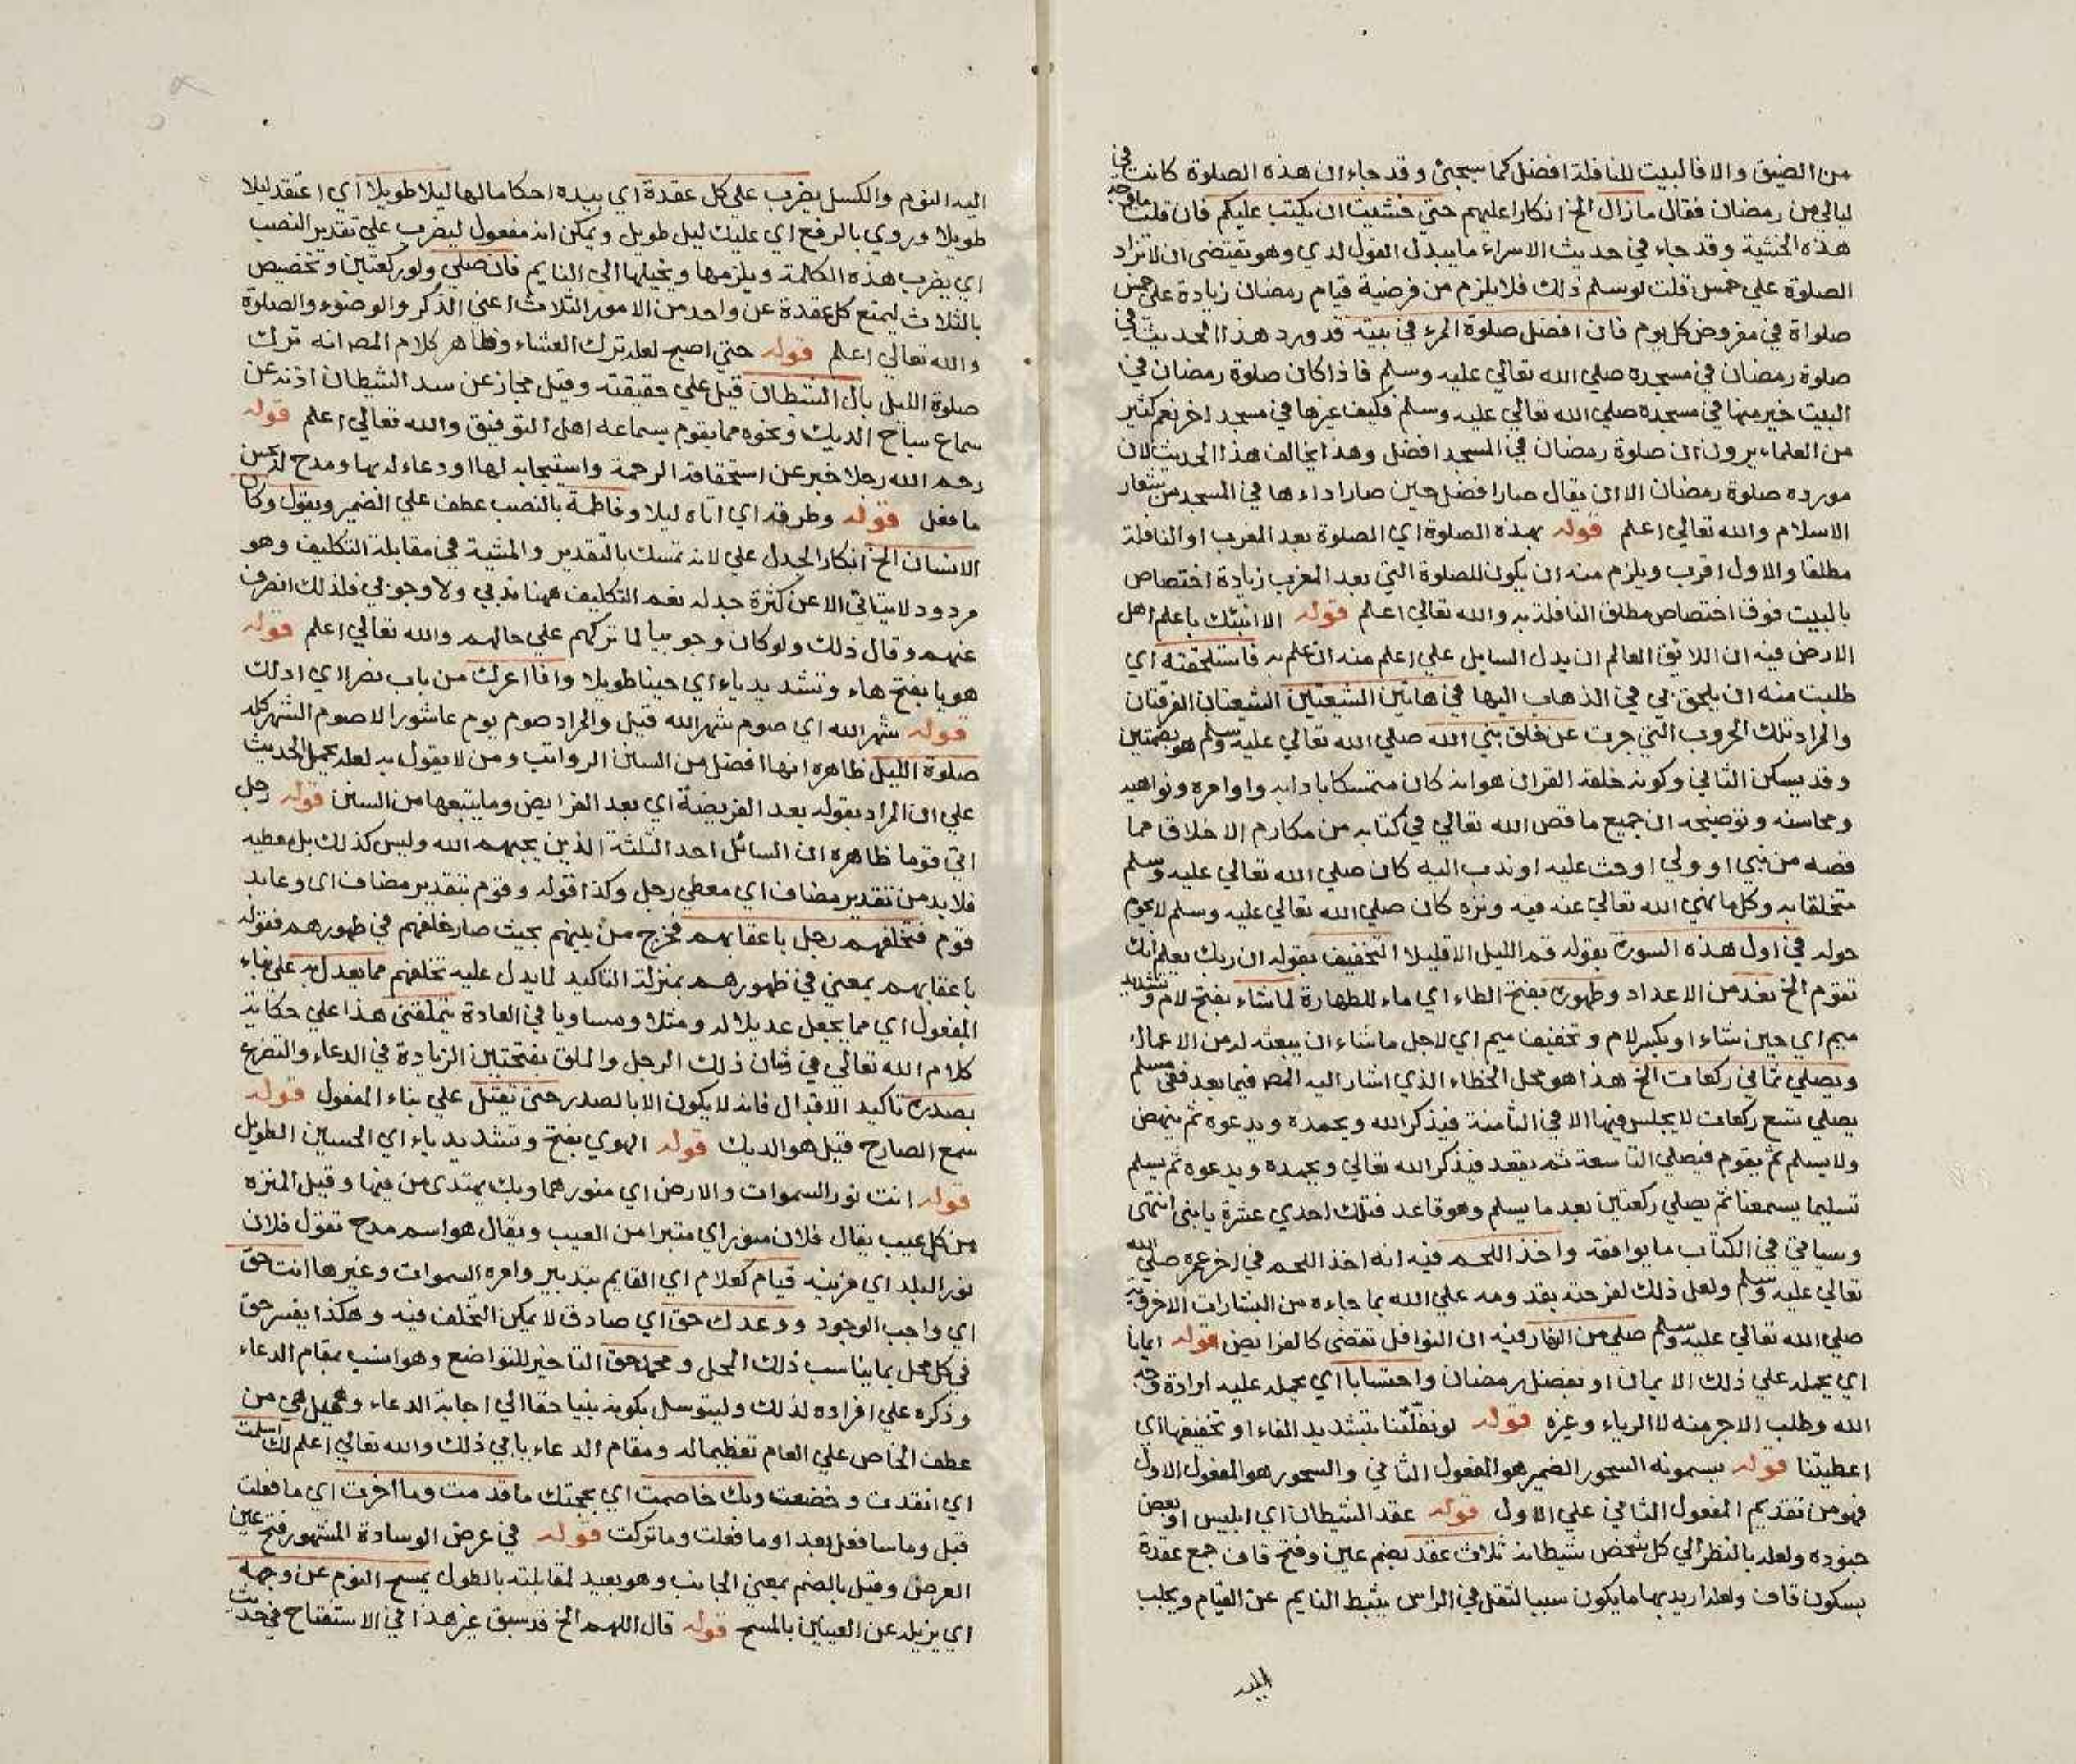 من الضيق والا فالبيت للنافلة افضل كما سيجئ وقد جاء ان هذه الصلوة كانت في
ليالي من رمضان فقال ما زال الخ انكارا عليهم حتي خشيت ان يكتب عليكم فان قلت ما وجه
هذه الخشية وقد جاء في حديث الاسراء ما يبدل القول لدي وهو يقتضى ان لا تزاد
الصلوة علي خمس قلت لو سلم ذلك فلا يلزم من فرضية قيام رمضان زيادة علي خمس
صلواة في مفروض كل يوم فان افضل صلوة المرء في بيته قد ورد هذا الحديث في
صلوة رمضان في مسجده صلي الله تعالي عليه وسلم فاذا كان صلوة رمضان في
البيت خير منها في مسجده صلي الله تعالي عليه وسلم فكيف غيرها في مسجد اخر نعم كثير
من العلماء يرون ان صلوة رمضان في المسجد افضل وهذا يخالف هذا الحديث لان
مورده صلوة رمضان الا ان يقال صار افضل حين صار اداءها في المسجد من شعار
الاسلام والله تعالي اعلم قوله بهذه الصلوة اي الصلوة بعد المغرب او النافلة
مطلقا والاول اقرب ويلزم منه ان يكون للصلوة التي بعد المغرب زيادة اختصاص
بالبيت فوق اختصاص مطلق النافلة به والله تعالي اعلم قوله الا انبئك باعلم اهل
الارض فيه ان اللائق العالم ان يدل السايل علي اعلم منه ان علم به فاستلحقته اي
طلبت منه ان يلحق بي في الذهاب اليها في هاتين الشيعتين الشيعتان الفرقتان
والمراد تلك الحروب التي جرت عن خلق نبي الله صلي الله تعالي عليه وسلم هو بضمتين
وقد يسكن الثاني وكونه خلقه القران هو انه كان متمسكا بادابه واوامره ونواهيه
ومحاسنه وتوضيحه ان جميع ما قص الله تعالي في كتابه من مكارم الاخلاق مما
قصه من نبي او ولي او حث عليه او ندب اليه كان صلي الله تعالي عليه وسلم
متخلقا به وكل ما نهي الله تعالي عنه فيه ونزه كان صلي الله تعالي عليه وسلم لا يحوم
حوله في اول هذه السورة بقوله قم الليل الا قليلا التخفيف بقوله ان ربك يعلم انك
تقوم الخ نعد من الاعداد وطهوره بفتح الطاء اي ماء للطهارة لما شاء بفتح لام وتشديد
ميم اي حين شاء او بكسر لام وتخفيف ميم اي لاجل ما شاء ان يبعثه له من الاعمال
ويصلي ثماني ركعات الخ هذا هو محل الخطاء الذي اشار اليه المص فيما بعد ففي مسلم
يصلي تسع ركعات لا يجلس فيها الا في الثامنة فيذكر الله ويحمده ويدعوه ثم ينهض
ولا يسلم ثم يقوم فيصلي التاسعة ثم يقعد فيذكر الله تعالي ويحمده ويدعوه ثم يسلم
تسليما يسمعنا ثم يصلي ركعتين بعد ما يسلم وهو قاعد فتلك احدي عشرة يا بني انتهى
وسياتي في الكتاب ما يوافقه واخذ اللحم فيه انه اخذ اللحم في اخر عمره صلي الله
تعالي عليه وسلم ولعل ذلك لفرحته بقدومه علي الله بما جاءه من البشارات الاخروية
صلي الله تعالي عليه وسلم صلي من النهار فيه ان النوافل تقضي كالفرايض قوله ايمانا
اي يحمله علي ذلك الايمان او بفضل رمضان واحتسابا اي يحمله عليه ارادة وجه
الله وطلب الاجر منه لا الرياء وغيره قوله لو نفلتنا بتشديد الفاء او تخفيفها اي
اعطيتنا قوله يسمونه السحور الضمير هو المفعول الثاني والسحور هو المفعول الاول
فهو من تقديم المفعول الثاني علي الاول قوله عقد الشيطان اي ابليس او بعض
جنوده ولعله بالنظر الي كل شخص شيطانه ثلاث عقد بضم عين وفتح قاف جمع عقدة
بسكون قاف ولعله اريد بها ما يكون سببا لثقل في الراس يثبط النايم عن القيام ويجلب
اليه النوم والكسل يضرب علي كل عقدة اي بيده احكاما لها ليلا طويلا اي اعتقد ليلا
طويلا وروي بالرفع اي عليك ليل طويل ويمكن انه مفعول ليضرب علي تقدير النصب
اي يضرب هذه الكلمة ويلزمها ويخيلها الى النايم فان صلي ولو ركعتين وتخصيص
بالثلاث ليمنع كل عقدة عن واحد من الامور الثلاث اعني الذكر والوضوء والصلوة
والله تعالي اعلم قوله حتي اصبح لعله ترك العشاء وظاهر كلام المص انه ترك
صلوة الليل بال الشيطان قيل علي حقيقته وقيل مجاز عن سد الشيطان اذنه عن
سماع سياح الديك ونحوه مما يقوم بسماعه اهل التوفيق والله تعالي اعلم قوله
رحم الله رجلا خبر عن استحقاقه الرحمة واستيجابه لها او دعاء له بها ومدح له بحسن
ما فعل قوله وطرقه اي اتاه ليلا وفاطمة بالنصب عطف علي الضمير ويقول وكان
الانسان الخ انكار لجدل علي لانه تمسك بالتقدير والمشية في مقابلة التكليف وهو
مردود لا يتاتي الا عن كثرة جدله نعم التكليف ههنا ندبي ولا وجوبي فلذلك انصرف
عنهم وقال ذلك ولو كان وجوبيا لما تركهم علي حالهم والله تعالي اعلم قوله
هويا بفتح هاء وتشديد ياء اي حينا طويلا وافا اعرك من باب نصر اي ادلك
قوله شهر الله اي صوم شهر الله قيل والمراد صوم يوم عاشورا لا صوم الشهر كله
صلوة الليل ظاهره انها افضل من السنن الرواتب ومن لا يقول به لعله يحمل الحديث
علي ان المراد بقوله بعد الفريضة اي بعد الفرايض وما يتبعها من السنن قوله رجل
اتى قوما ظاهره ان السائل احد الثلثة الذين يحبهم الله وليس كذلك بل معطيه
فلا بد من تقدير مضاف اي معطي رجل وكذا قوله وقوم بتقدير مضاف اي وعابد
قوم فتخلفهم رجل باعقابهم فخرج من بينهم بحيث صار خلفهم في ظهورهم فقوله
باعقابهم بمعني في ظهورهم بمنزلة التاكيد لما يدل عليه تخلفهم مما يعدل به علي بناء
المفعول اي مما يجعل عديلا له ومثلا ومساويا في العادة يتملقني هذا علي حكاية
كلام الله تعالي في شان ذلك الرجل والملق بفتحتين الزيادة في الدعاء والتضرع
بصدره تاكيد الاقبال فانه لا يكون الا بالصدر حتي يقتل علي بناء المفعول قوله
سمع الصارخ قيل هو الديك قوله الهوي بفتح وتشديد ياء اي الحسين الطويل
قوله انت نور السموات والارض اي منورهما وبك يهتدى من فيها وقيل المنزه
من كل عيب يقال فلان منور اي متبرا من العيب ويقال هو اسم مدح تقول فلان
نور البلد اي مزينه قيام كعلام اي القايم بتدبير وامره السموات وغيرها انت حق
اي واجب الوجود ووعدك حق اي صادق لا يمكن التخلف فيه وهكذا يفسر حق
في كل محل بما يناسب ذلك المحل ومحمد حق التاخير للتواضع وهو انسب بمقام الدعاء
وذكره علي افراده لذلك وليتوسل بكونه نبيا حقا الي اجابة الدعاء وقيل هي من
عطف الخاص علي العام تعظيما له ومقام الدعاء يابي ذلك والله تعالي اعلم لك اسلمت
اي انقدت وخضعت وبك خاصمت اي بحجتك ما قدمت وما اخرت اي ما فعلت
قبل وما سافعل بعد او ما فعلت وما تركت قوله في عرض الوسادة المشهور فتح عين
العرض وقيل بالضم بمعني الجانب وهو بعيد لمقابلته بالطول يمسح النوم عن وجهه
اي يزيله عن العينين بالمسح قوله قال اللهم الخ قد سبق غير هذا في الاستفتاح في حديث